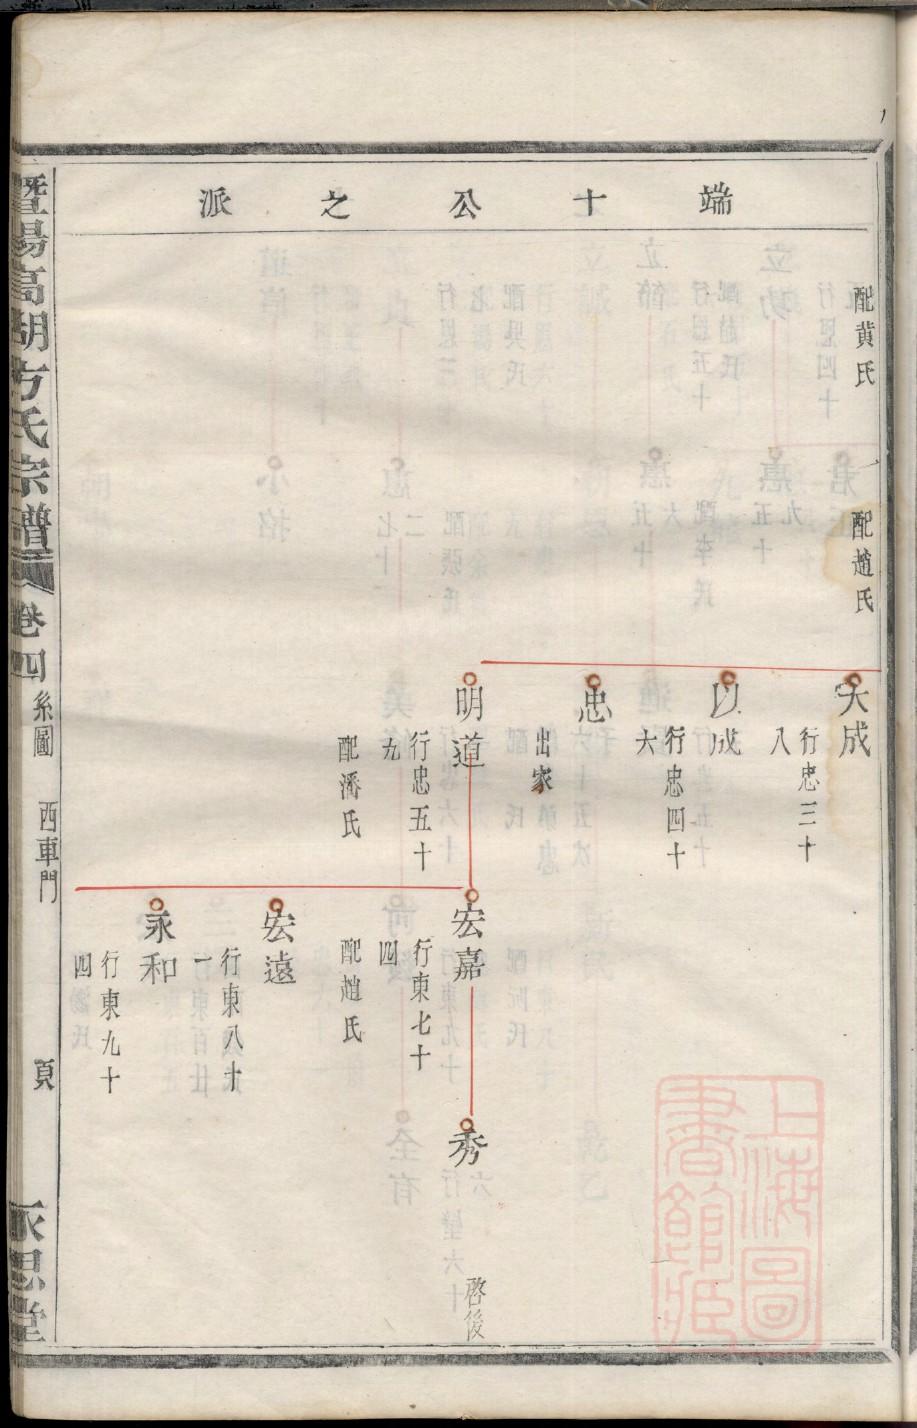 端十公之派
配黄氏
配趙氏
大成
行忠三十
八
以成
行忠四十
六
忠
出家
明道
行忠五十
九
配潘氏
宏嘉
行東七十
四
配趙氏
宏遠
行東八十
一
永和
行東九十
四
秀
啓後
暨陽高湖方氏宗譜
卷四
系圖
西車門
頁
永思堂
上海圖
書館藏